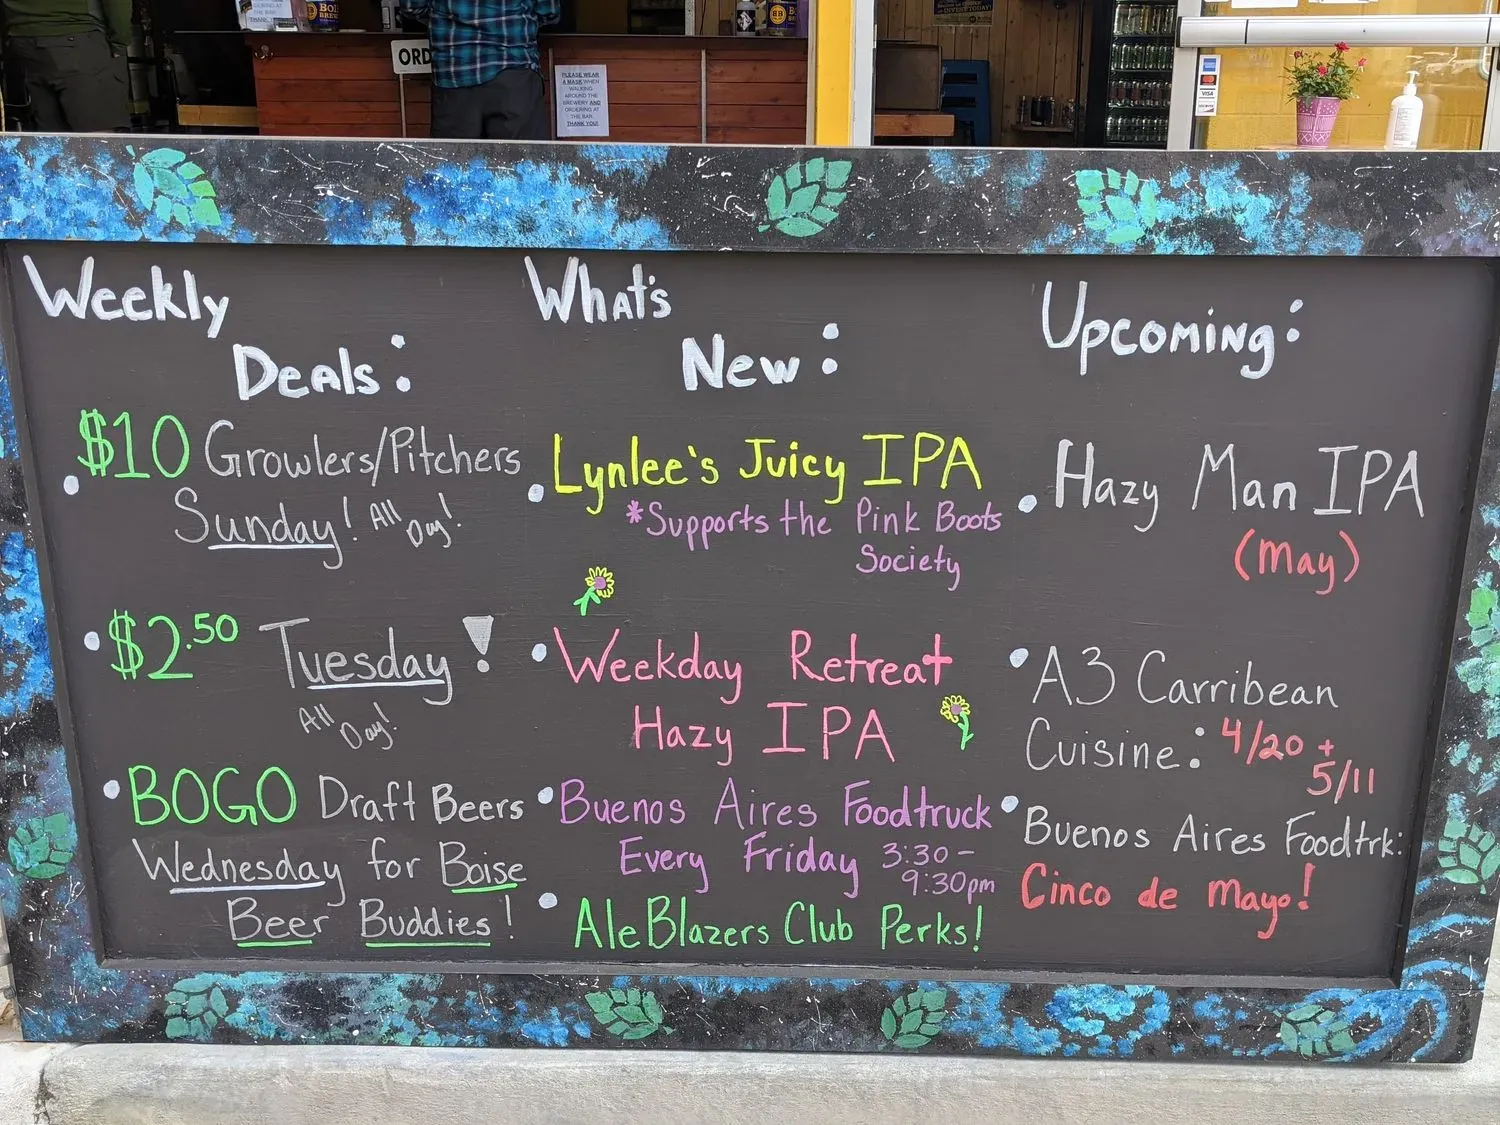 ORD
PLEASE WEAR
A MASK WHEN
WALKING
AROUND THE
BREWERY AND
ORDERING AT
THE BAR.
THANK YOU!
VISA
Weekly
Deals:
$10 Growlers/Pitchers
Sunday! All
Day!
$2.50 Tuesday!
All
Day!
BOGO Draft Beers
Wednesday for Boise
Beer Buddies!
What's
New:
Lynlee's Juicy IPA
*Supports the Pink Boots
Society
Weekday Retreat
Hazy IPA
Buenos Aires Foodtruck
Every Friday 3:30-
9:30pm
AleBlazers Club Perks!
Upcoming:
Hazy Man IPA
(May)
A3 Carribean
Cuisine: 4/20 +
5/11
Buenos Aires Foodtrk:
Cinco de mayo!